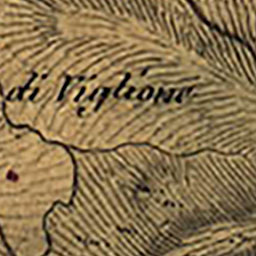 di Viglione